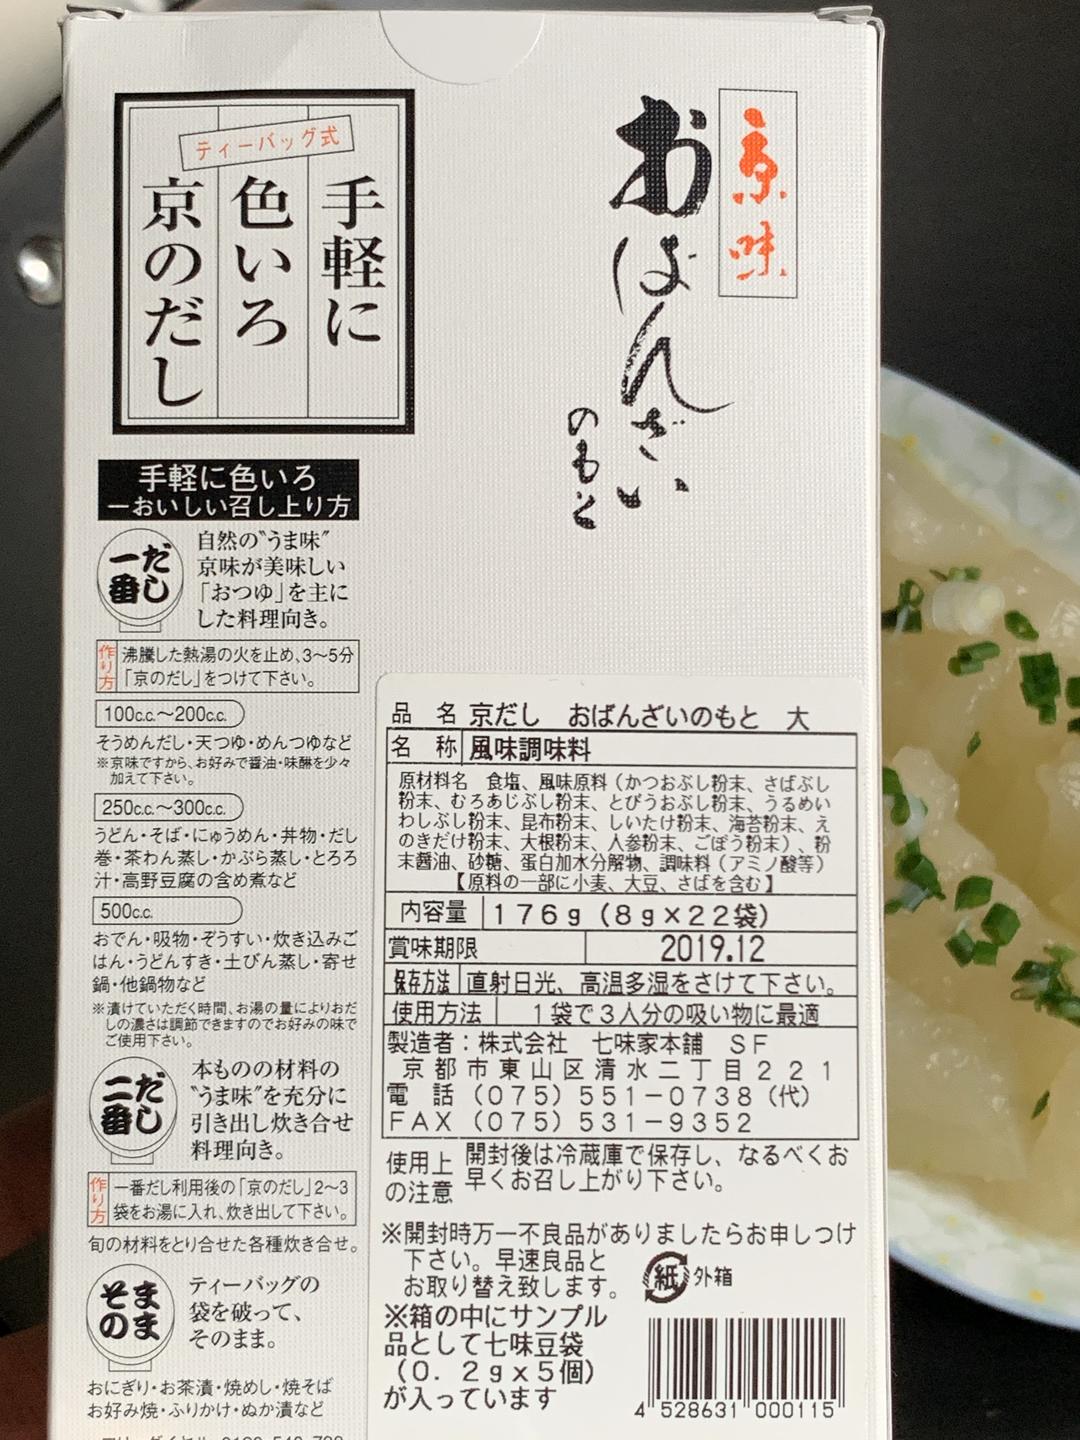 京味
おばんざい
のもと
ティーバッグ式
手軽に
色いろ
京のだし
手軽に色いろ
ーおいしい召し上り方
一番だし
自然の〝うま味〟
京味が美味しい
「おつゆ」を主に
した料理向き。
作り方
沸騰した熱湯の火を止め、3〜5分
「京のだし」をつけて下さい。
100c.c.〜200c.c.
そうめんだし・天つゆ・めんつゆなど
※京味ですから、お好みで醤油・味醂を少々
加えて下さい。
250c.c.〜300c.c.
うどん・そば・にゅうめん・丼物・だし
巻・茶わん蒸し・かぶら蒸し・とろろ
汁・高野豆腐の含め煮など
500c.c.
おでん・吸物・ぞうすい・炊き込みご
はん・うどんすき・土びん蒸し・寄せ
鍋・他鍋物など
※漬けていただく時間、お湯の量によりおだ
しの濃さは調節できますのでお好みの味で
ご使用下さい。
二番だし
本ものの材料の
〝うま味〟を充分に
引き出し炊き合せ
料理向き。
作り方
一番だし利用後の「京のだし」2〜3
袋をお湯に入れ、炊き出して下さい。
旬の材料をとり合せた各種炊き合せ。
そのまま
ティーバッグの
袋を破って、
そのまま。
おにぎり・お茶漬・焼めし・焼そば
お好み焼・ふりかけ・ぬか漬など
品 名 京だし おばんざいのもと 大
名 称 風味調味料
原材料名 食塩、風味原料（かつおぶし粉末、さばぶし
粉末、むろあじぶし粉末、とびうおぶし粉末、うるめい
わしぶし粉末、昆布粉末、しいたけ粉末、海苔粉末、え
のきだけ粉末、大根粉末、人参粉末、ごぼう粉末）、粉
末醤油、砂糖、蛋白加水分解物、調味料（アミノ酸等）
【原料の一部に小麦、大豆、さばを含む】
内容量 176g（8g×22袋）
賞味期限 2019.12
保存方法 直射日光、高温多湿をさけて下さい。
使用方法 1袋で3人分の吸い物に最適
製造者：株式会社 七味家本舗 SF
京都市東山区清水二丁目221
電 話（075）551－0738（代）
FAX（075）531－9352
使用上の注意 開封後は冷蔵庫で保存し、なるべくお
早くお召し上がり下さい。
※開封時万一不良品がありましたらお申しつけ
下さい。早速良品と
お取り替え致します。
紙 外箱
※箱の中にサンプル
品として七味豆袋
（0.2g×5個）
が入っています
4 528631 000115